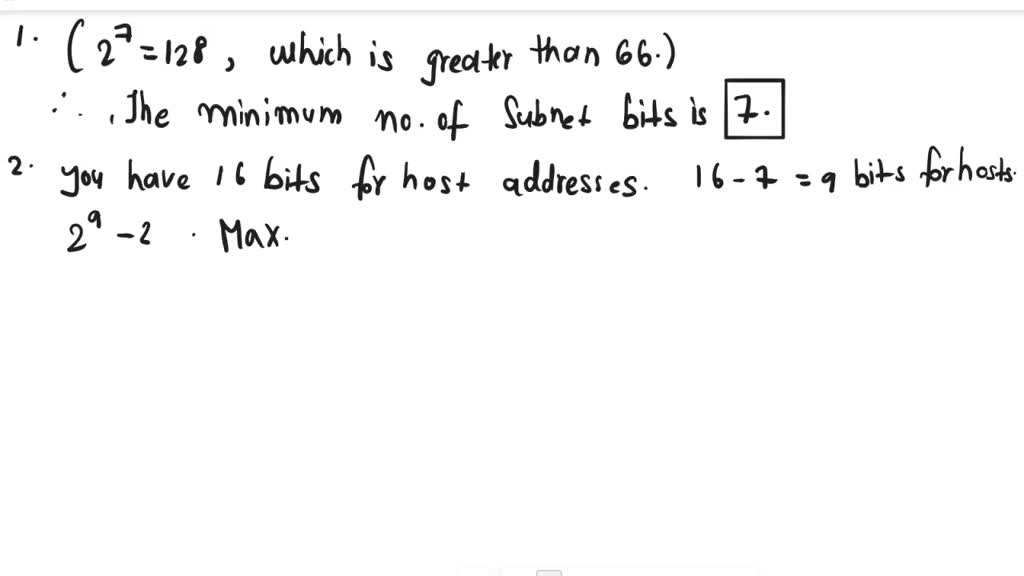 1. (2^7 = 128, which is greater than 66.)
∴ . The minimum no. of Subnet bits is 7.
2. you have 16 bits for host addresses. 16 - 7 = 9 bits for hosts.
2^9 - 2 . Max.